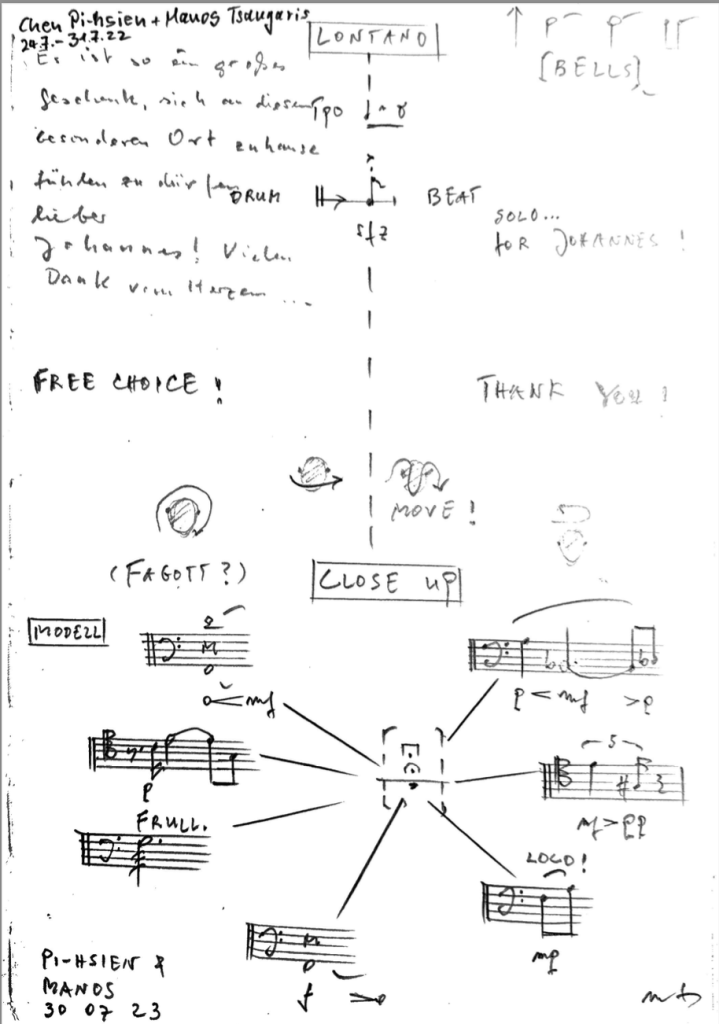 Chen Pi-hsien + Manos Tsangaris
24.7.-31.7.22
LONTANO
[BELLS]
Es ist so ein großes
Geschenk, sich an diesem
Tpo
besonderen Ort zuhause
fühlen zu dürfen
DRUM
BEAT
sfz
lieber
Johannes! Vielen
Dank vom Herzen ...
SOLO...
FOR JOHANNES!
FREE CHOICE!
THANK YOU!
MOVE!
(FAGOTT?)
CLOSE UP
MODELL
o < mf
p < mf > p
p
5
mf > pp
FRULL.
LOCO!
mf
f > o
PI-HSIEN &
MANOS
30 07 23